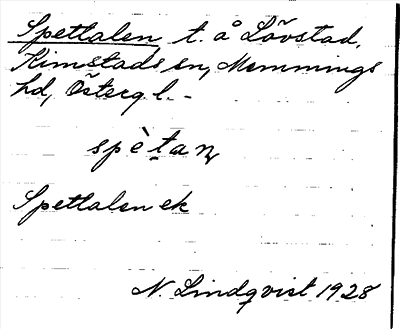 Spettalen t. å Lövstad,
Kimstads sn, Memmings
hd, Östergl. -
spètaɲ
Spettalen ek
N. Lindqvist 1928